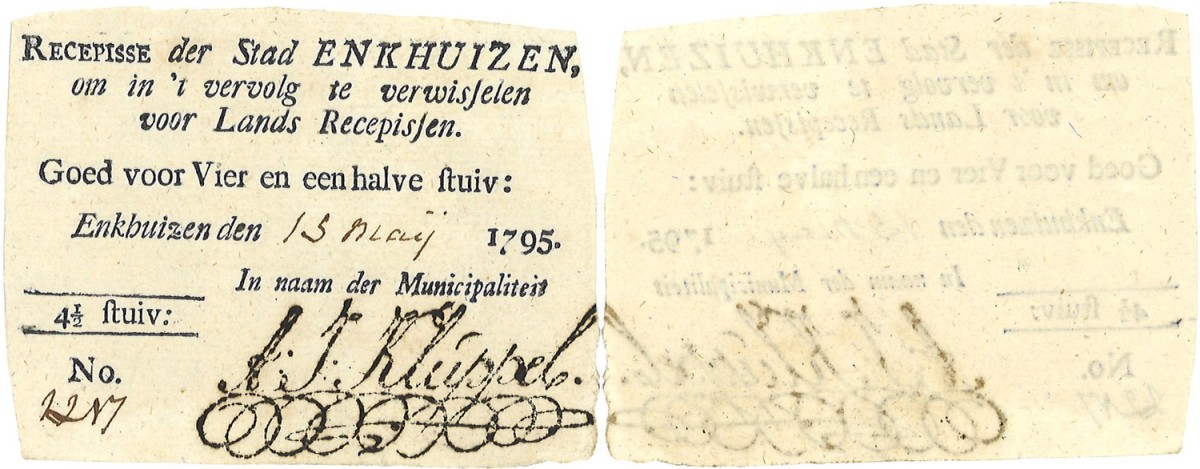 RECEPISSE der Stad ENKHUIZEN,
om in 't vervolg te verwiſſelen
voor Lands Recepiſſen.
Goed voor Vier en een halve ſtuiv:
Enkhuizen den 15 Maij 1795.
In naam der Municipaliteit
4½ ſtuiv:
A: J: Kluppel.
No.